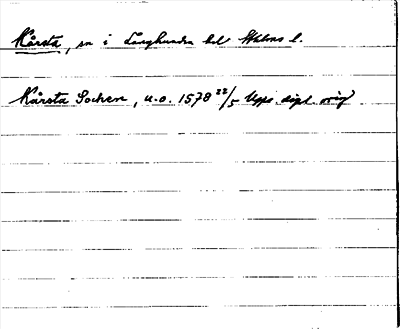 Kårsta, sn i Långhundra hd Sthlms l.
Kårsta Sochen, u.o. 1578 22/5 Upps. dipl. orig